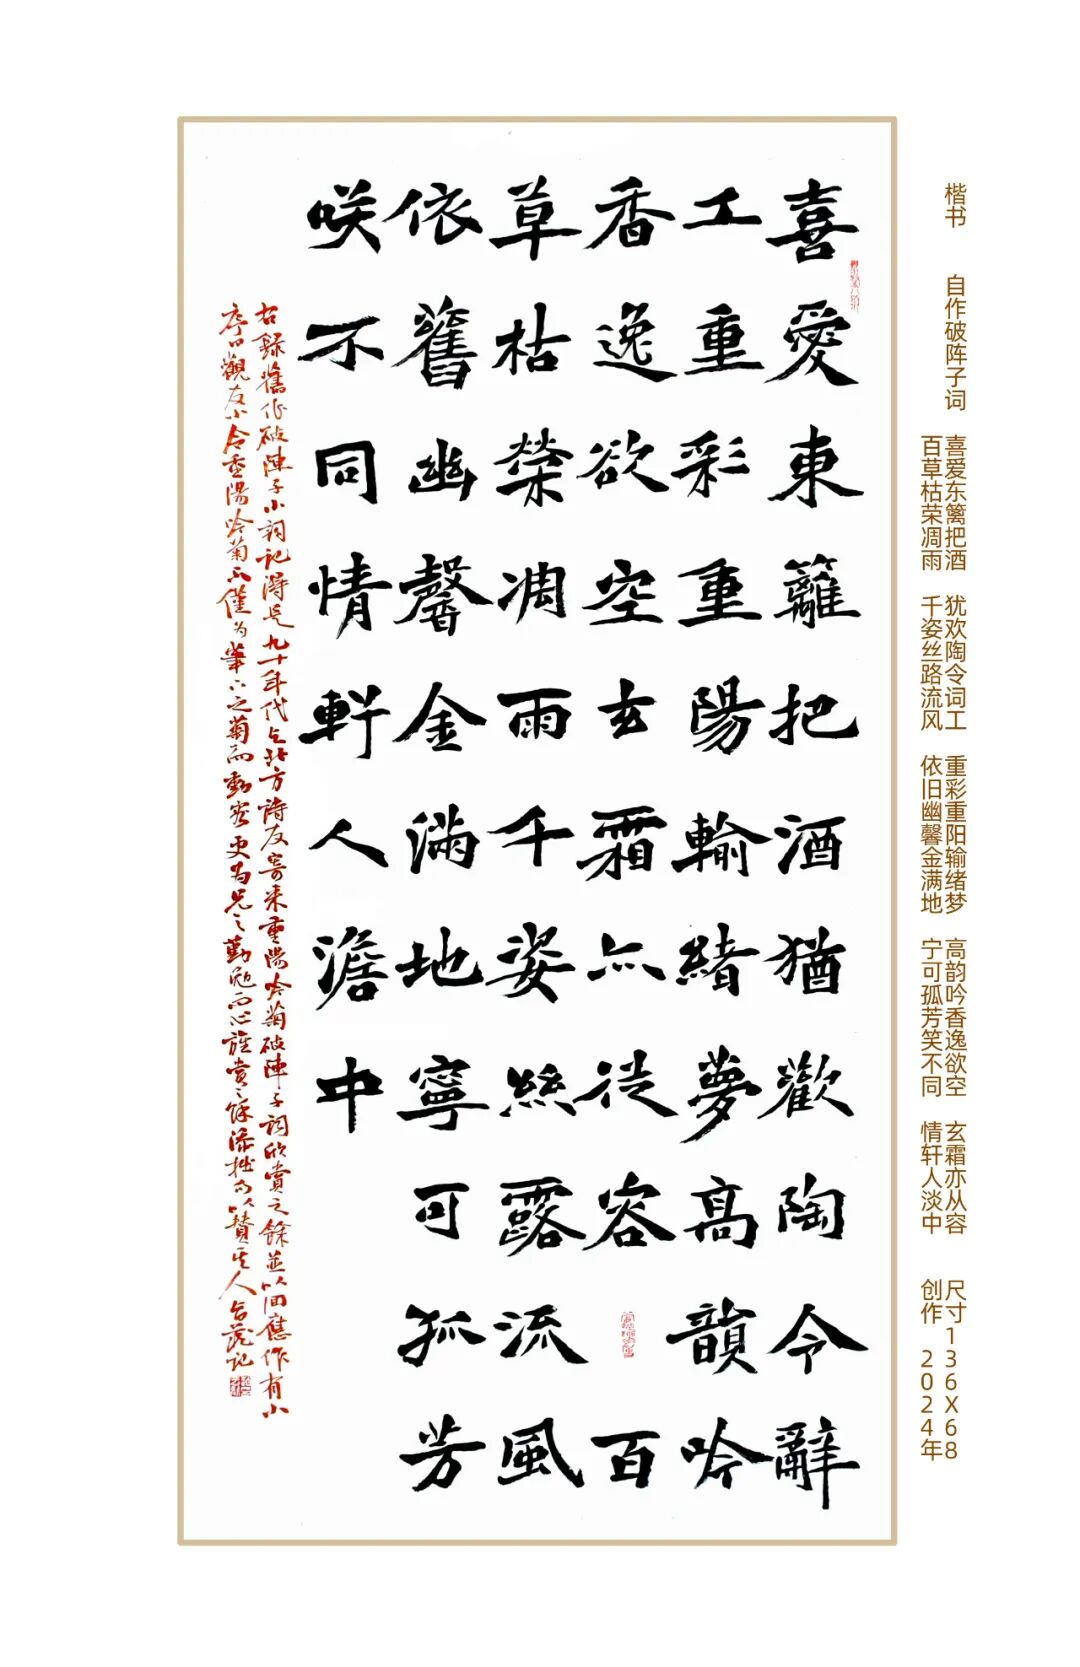 喜愛東籬把酒猶歡陶令辭
工重彩重陽輸緒夢高韻吟
香逸欲空玄霜亦從容百
草枯榮凋雨千姿絲露流風
依舊幽馨金滿地寧可孤芳
咲不同情軒人澹中
右錄舊作破陣子小詞記得是九十年代之北方詩友寄來重陽吟菊破陣子詞欣賞之餘並以回應作有小
序口觀友小令重陽吟菊不僅為筆下之菊而動容更為兄之勤勉而心旌賞之餘添拙句以贊其人
楷书 自作破阵子词 喜爱东篱把酒 犹欢陶令词工 重彩重阳输绪梦 高韵吟香逸欲空 玄霜亦从容 尺寸136X68
百草枯荣凋雨 千姿丝路流风 依旧幽馨金满地 宁可孤芳笑不同 情轩人淡中 创作 2024年